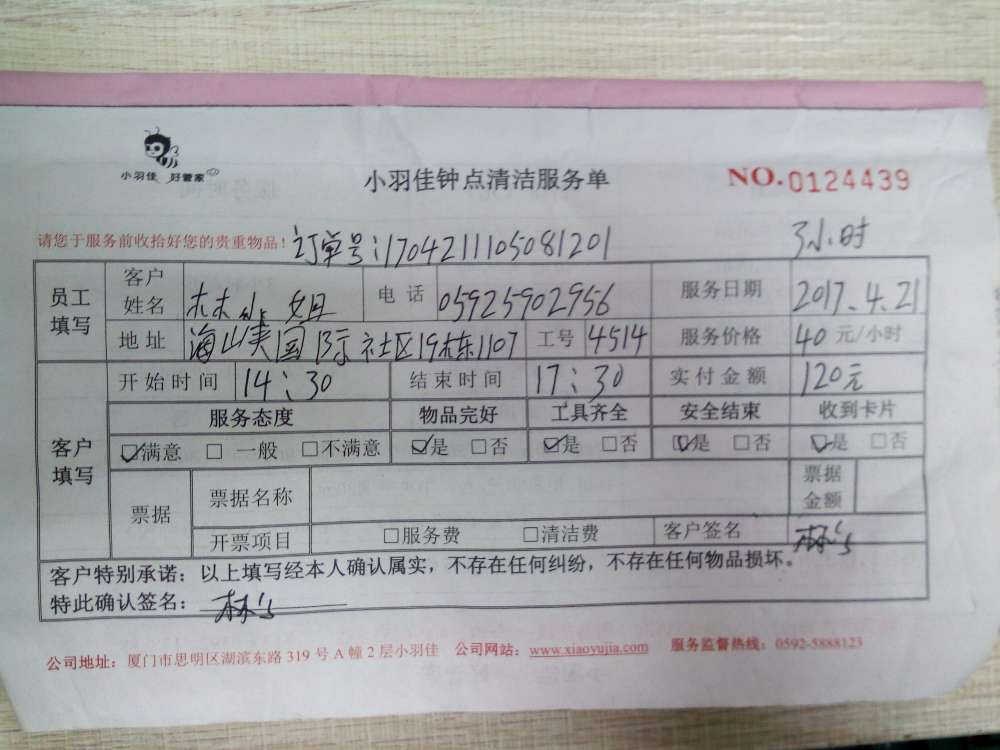 小羽佳 好管家
小羽佳钟点清洁服务单 NO.0124439
请您于服务前收拾好您的贵重物品! 订单号:1704211105081201 3小时
员工填写 客户姓名 林小姐 电话 05925902956 服务日期 2017.4.21
地址 海峡国际社区19栋1107 工号 4514 服务价格 40 元/小时
客户填写 开始时间 14:30 结束时间 17:30 实付金额 120元
服务态度 物品完好 工具齐全 安全结束 收到卡片
☑满意 □ 一般 □不满意 ☑是 □否 ☑是 □否 ☑是 □否 ☑是 □否
票据 票据名称 票据金额
开票项目 □服务费 □清洁费 客户签名
客户特别承诺:以上填写经本人确认属实,不存在任何纠纷,不存在任何物品损坏。
特此确认签名:
公司地址:厦门市思明区湖滨东路 319 号 A 幢 2 层小羽佳 公司网站:www.xiaoyujia.com 服务监督热线:0592-5888123